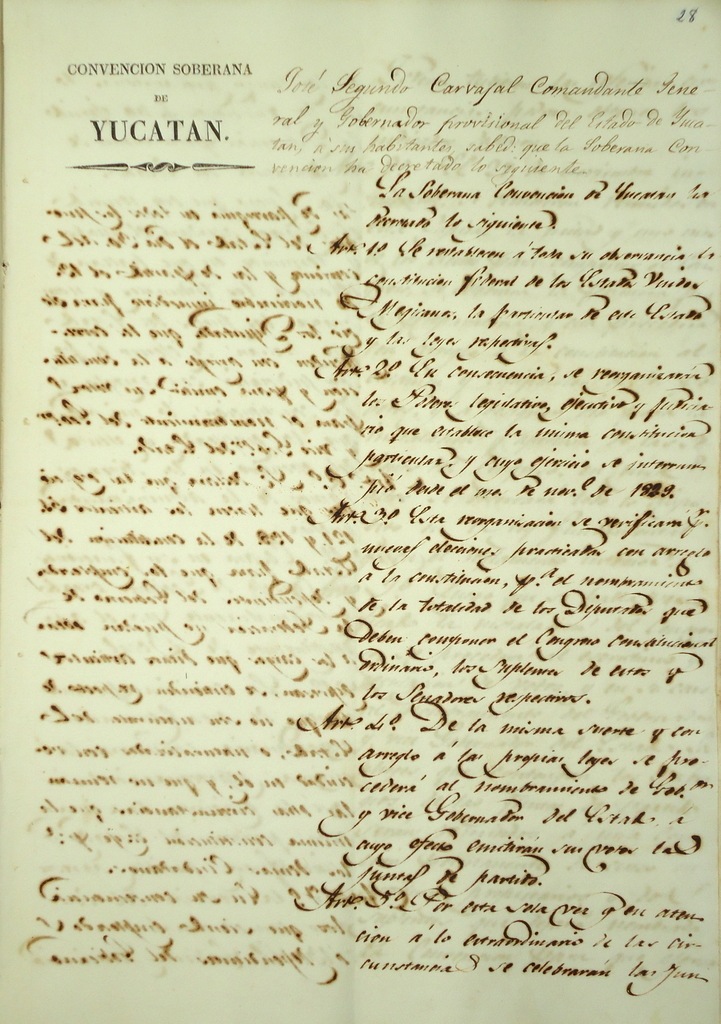 28
CONVENCION SOBERANA
DE
YUCATAN.
José Segundo Carvajal Comandante Gene-
ral y Gobernador provisional del Estado de Yuca-
tan, á sus habitantes, sabed: que la Soberana Con-
vencion ha decretado lo siguiente.
La Soberana Convencion de Yucatan ha
decretado lo siguiente.
Art.º 1.º Se restablecen á toda su observancia la
constitucion federal de los Estados Unidos
Megicanos, la particular de este Estado
y las leyes respectivas.
Art.º 2.º En consecuencia, se reorganizarán
los Poderes legislativo, ejecutivo y judicia
rio que establece la misma constitucion
particular, y cuyo ejercicio se interrum
pió desde el mes de nov.e de 1829.
Art.º 3.º Esta reorganizacion se verificará p.r
nuevas elecciones practicadas con arreglo
á la constitucion, p.a el nombramiento
de la totalidad de los Diputados que
deben componer el Congreso constitucional
ordinario, los suplentes de estos y
los Senadores respectivos.
Art.º 4.º De la misma suerte y con
arreglo á las propias leyes se pro-
cederá al nombramiento de Gob.or
y vice Gobernador del Estado á
cuyo efecto emitirán sus votos las
juntas de partido.
Art.º 5.º Por esta sola vez y en aten
cion á lo extraordinario de las cir-
cunstancias se celebrarán las Jun